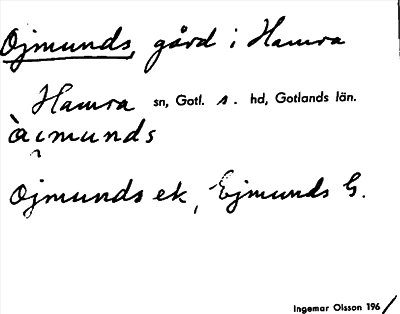 Ojmunds, gård i Hamra
Hamra sn, Gotl. s. hd, Gotlands län.
ài̯munds
Ojmunds ek, Ejmunds G.
Ingemar Olsson 196/